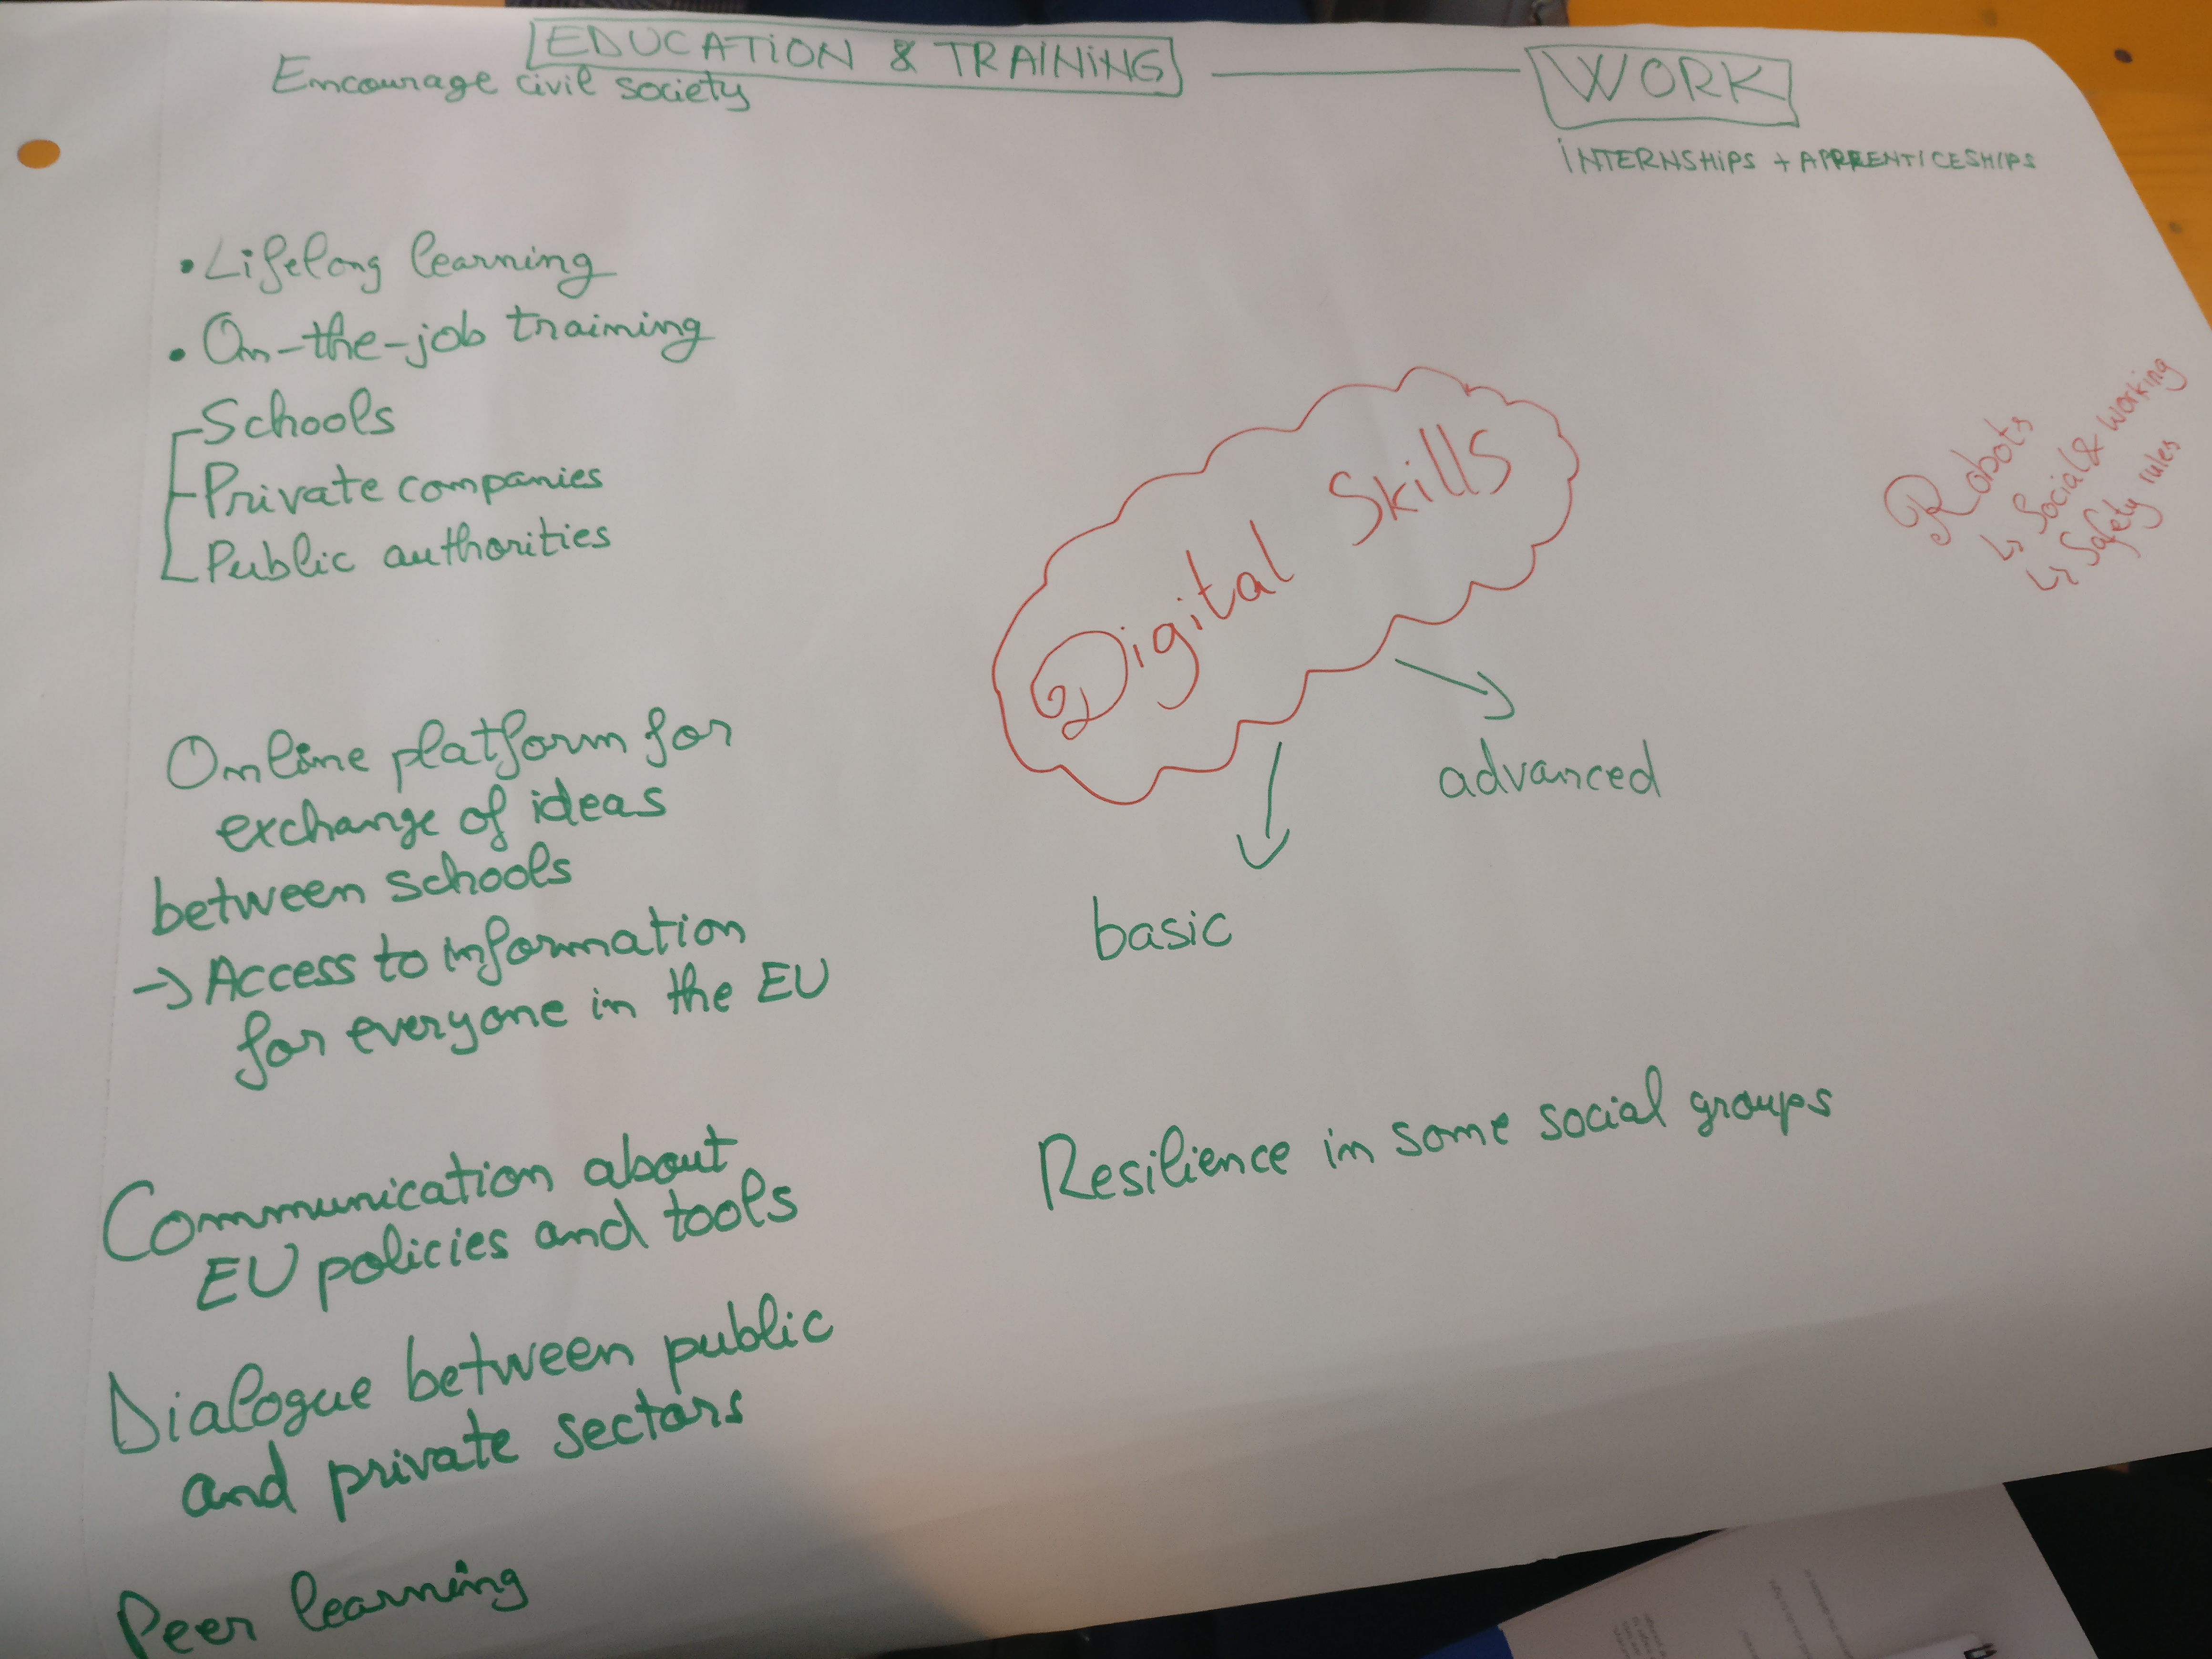 EDUCATION & TRAINING
WORK
Encourage civil society
INTERNSHIPS + APPRENTICESHIPS
• Lifelong learning
• On-the-job training
Schools
Private companies
Public authorities
Digital Skills
advanced
basic
Robots
↳ Social & working
↳ Safety rules
Online platform for
exchange of ideas
between schools
→ Access to information
for everyone in the EU
Resilience in some social groups
Communication about
EU policies and tools
Dialogue between public
and private sectors
Peer learning